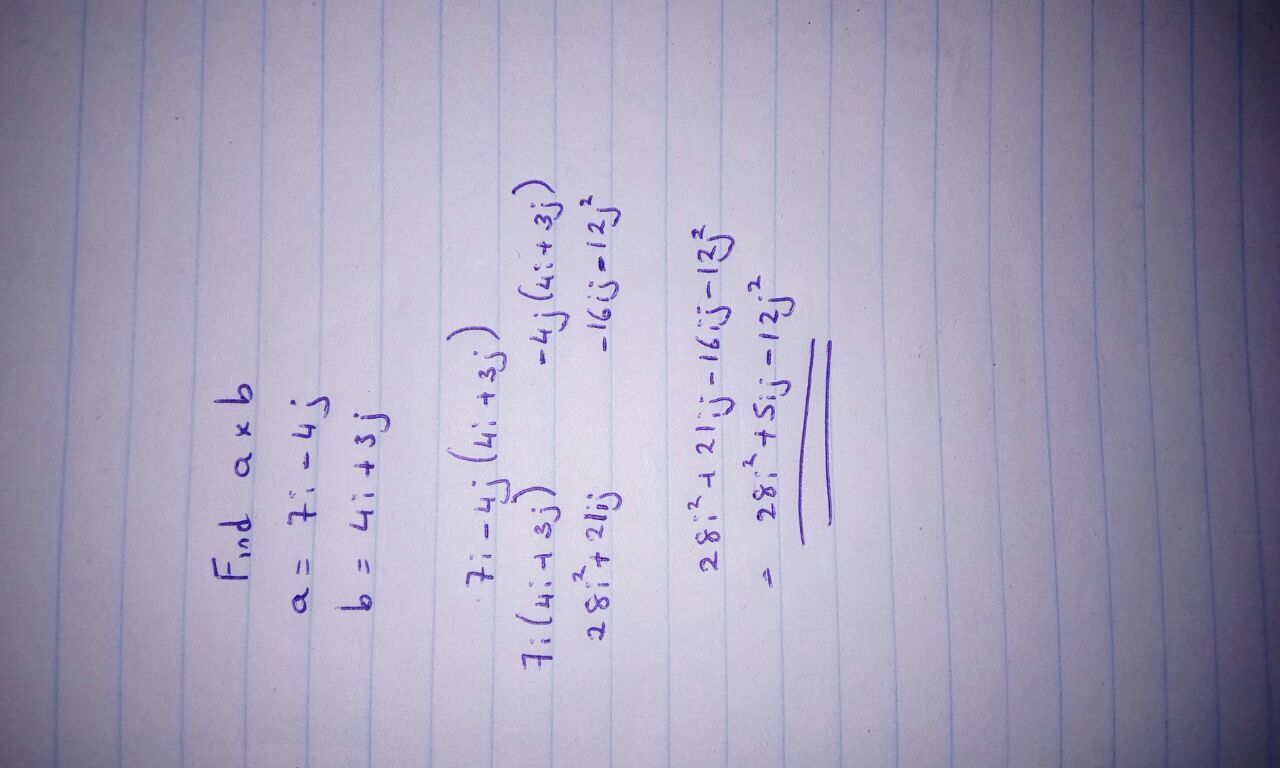 Find a x b
a = 7i - 4j
b = 4i + 3j
7i - 4j (4i + 3j)
7i(4i + 3j) -4j(4i + 3j)
28i² + 21ij -16ij - 12j²
28i² + 21ij - 16ij - 12j²
= 28i² + 5ij - 12j²